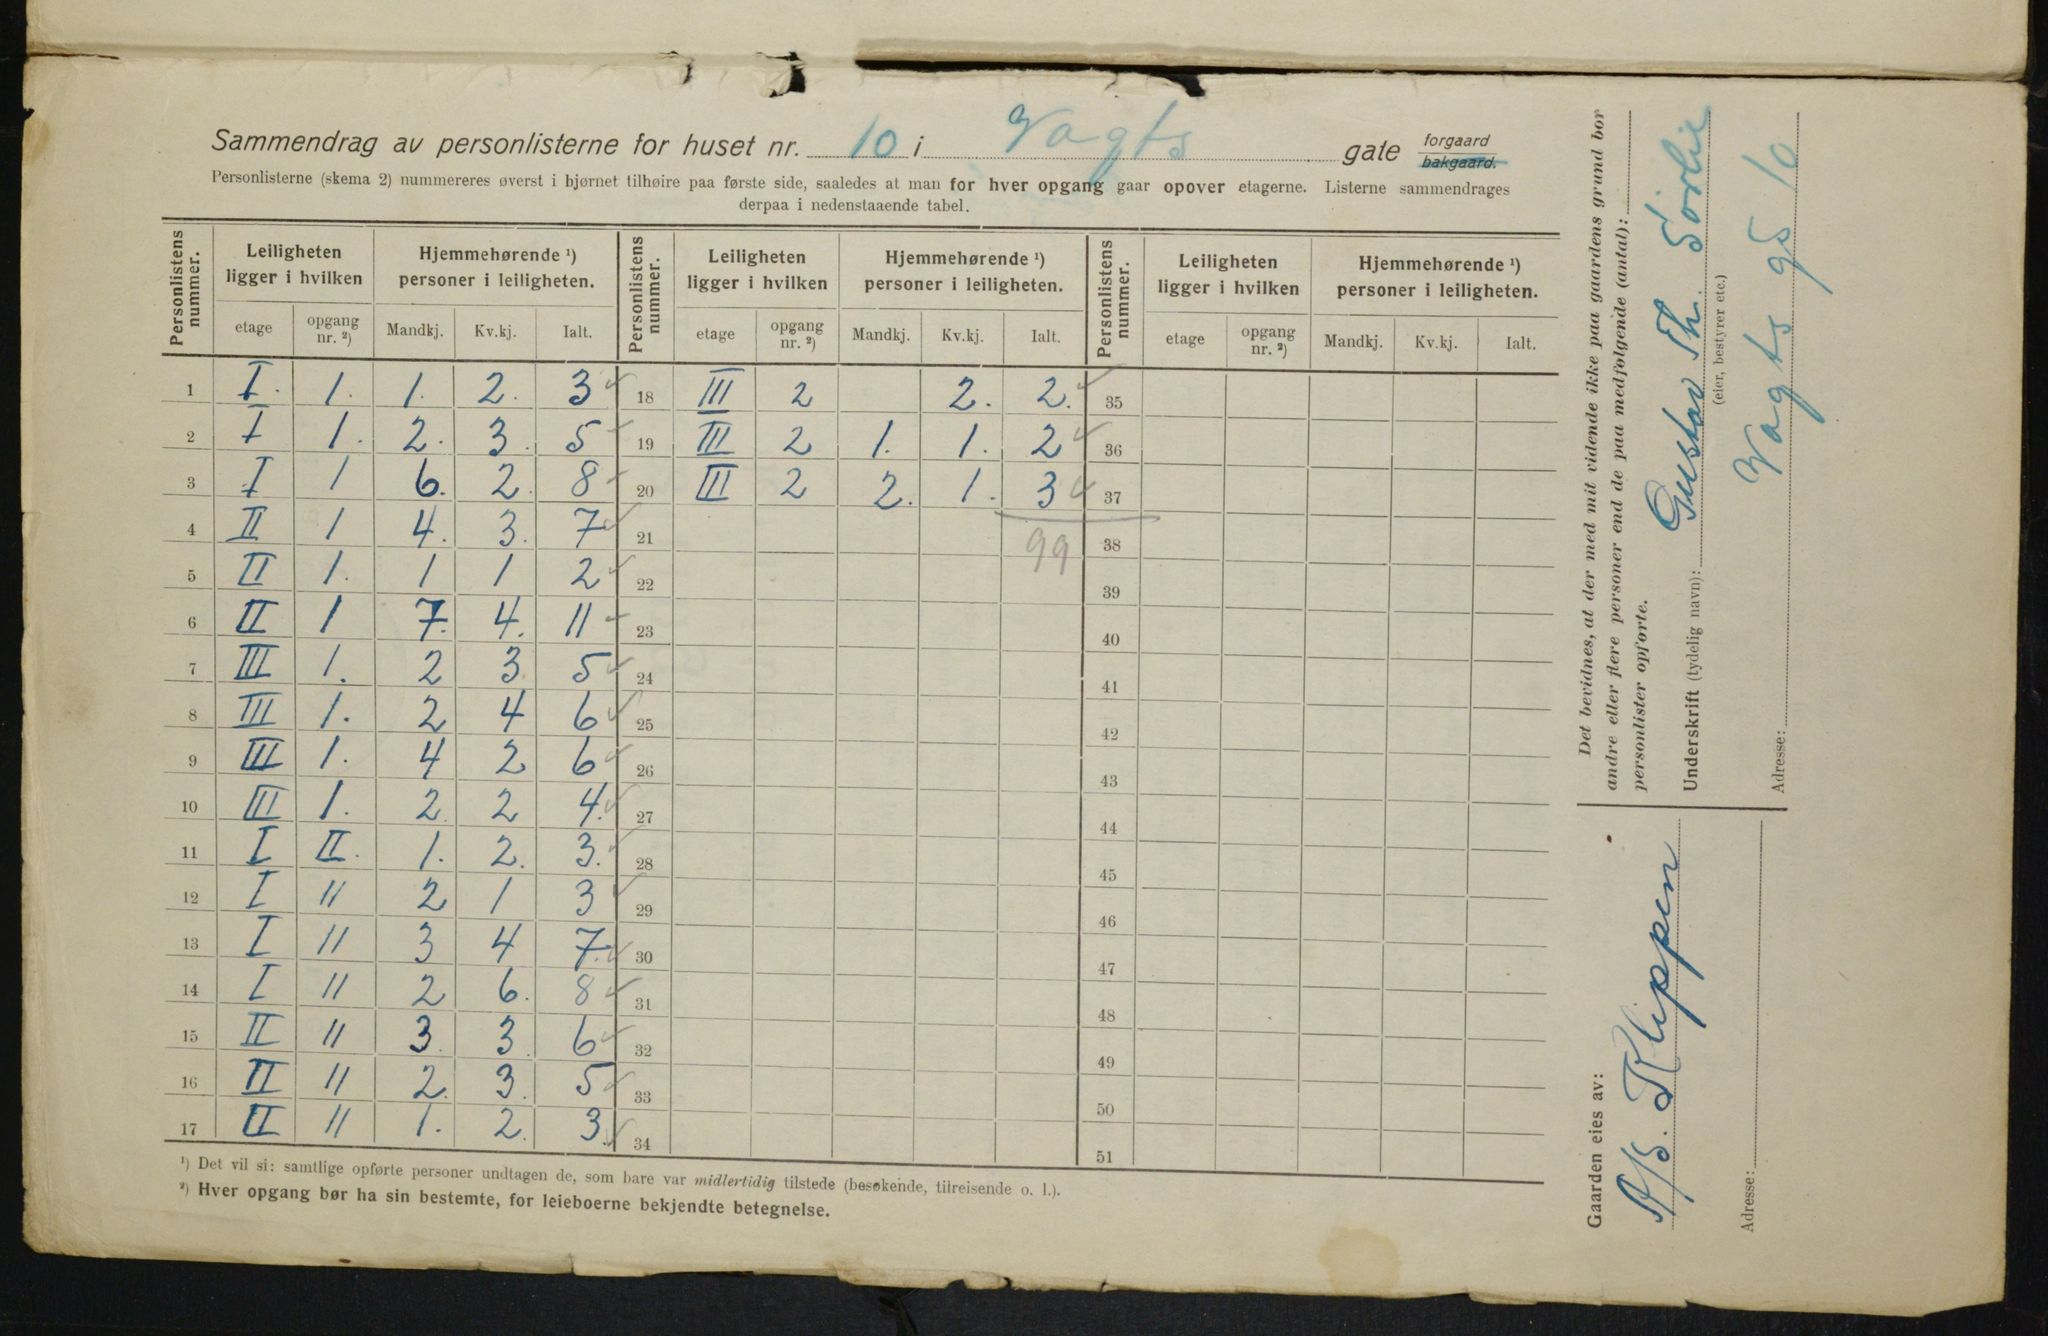 Sammendrag av personlisterne for huset nr. 10 i Vogts gate forgaard bakgaard.
Personlisterne (skema 2) nummereres øverst i hjørnet tilhøire paa første side, saaledes at man for hver opgang gaar opover etagerne. Listerne sammendrages
derpaa i nedenstaaende tabel.
Personlistens nummer. Leiligheten ligger i hvilken Hjemmehørende ¹) personer i leiligheten. Personlistens nummer. Leiligheten ligger i hvilken Hjemmehørende ¹) personer i leiligheten. Personlistens nummer. Leiligheten ligger i hvilken Hjemmehørende ¹) personer i leiligheten.
etage opgang nr. ²) Mandkj. Kv.kj. Ialt. etage opgang nr. ²) Mandkj. Kv.kj. Ialt. etage opgang nr. ²) Mandkj. Kv.kj. Ialt.
1 I. 1. 1. 2. 3 18 III 2 2. 2. 35
2 I 1. 2. 3. 5 19 III 2 1. 1. 2 36
3 I 1 6. 2. 8 20 III 2 2. 1. 3 37
4 II 1 4. 3. 7 21 99 38
5 II 1. 1 1 2 22 39
6 II 1 7. 4. 11 23 40
7 III 1. 2 3 5 24 41
8 III 1. 2 4 6 25 42
9 III 1. 4 2 6 26 43
10 III 1. 2 2 4. 27 44
11 I II. 1. 2. 3. 28 45
12 I 11 2 1 3 29 46
13 I 11 3 4 7. 30 47
14 I 11 2 6. 8 31 48
15 II 11 3 3 6 32 49
16 II 11 2. 3. 5 33 50
17 II 11 1. 2. 3. 34 51
¹) Det vil si: samtlige opførte personer undtagen de, som bare var midlertidig tilstede (besøkende, tilreisende o. l.).
²) Hver opgang bør ha sin bestemte, for leieboerne bekjendte betegnelse.
Det bevidnes, at der med mit vidende ikke paa gaardens grund bor
andre eller flere personer end de paa medfølgende (antal):
personlister opførte.
Underskrift (tydelig navn): Gustav Th. Sörlie
(eier, bestyrer etc.)
Adresse: Vogts gs 10
Gaarden eies av:
A/S. Klippen
Adresse: